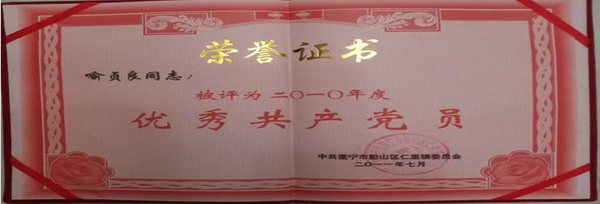 荣誉证书
喻贞良同志：
被评为二〇一〇年度
优秀共产党员
中共遂宁市船山区仁里镇委员会
二〇一一年七月